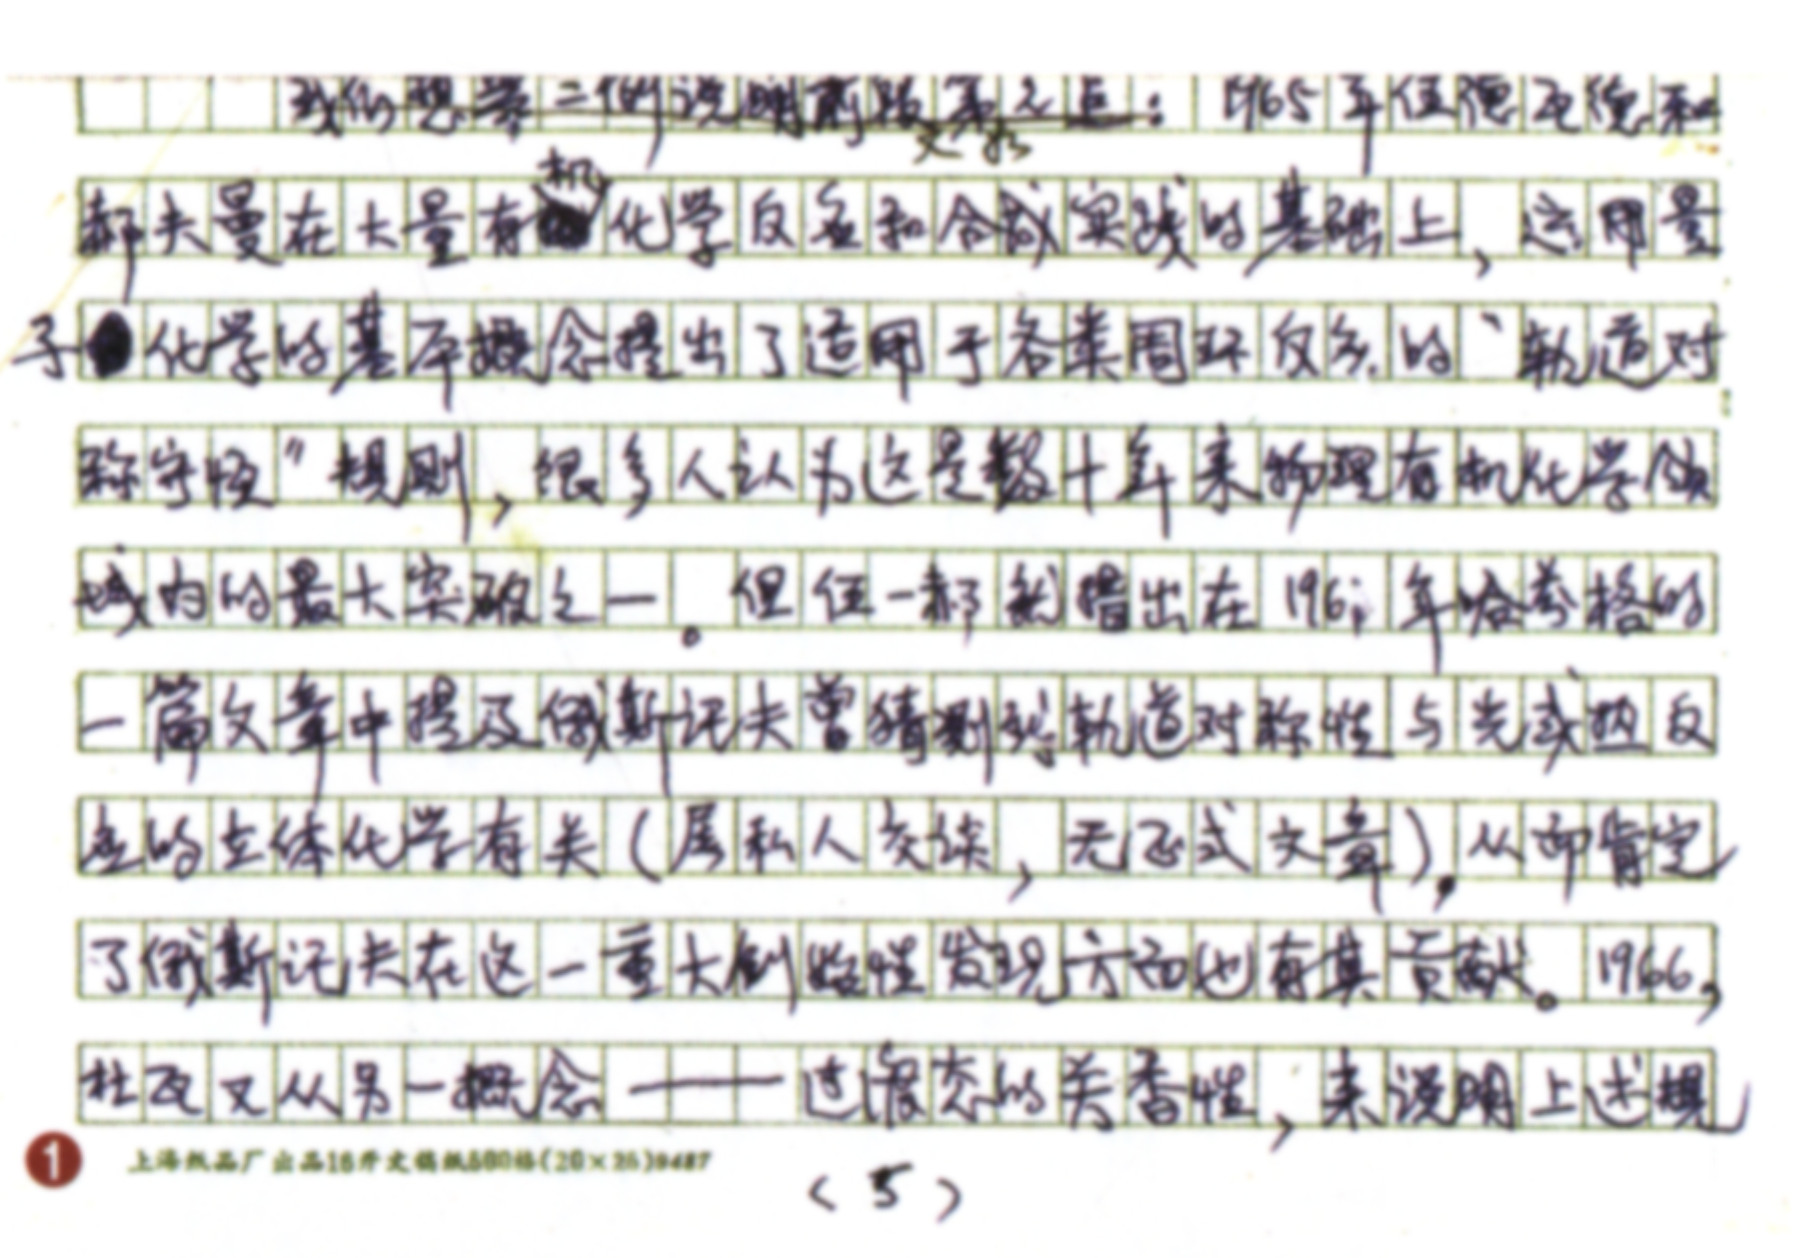 我们想举二例说明前段第之点：1965年伍德瓦德和
郝夫曼在大量有机化学反应和合成实践的基础上，运用量
子化学的基本概念提出了适用于各类周环反应的“轨道对
称守恒”规则，很多人认为这是数十年来物理有机化学领
域内的最大突破之一。但伍—郝就指出在196年哈芬格的
一篇文章中提及俄斯记夫曾猜测到轨道对称性与光或热反
应的立体化学有关（属私人交谈，无正式文章），从而肯定
了俄斯记夫在这一重大创始性发现方面也有其贡献。1966，
杜瓦又从另一概念——过渡态的芳香性，来说明上述规
1 上海纸品厂出品16开文稿纸500格(20×25)8487
(5)